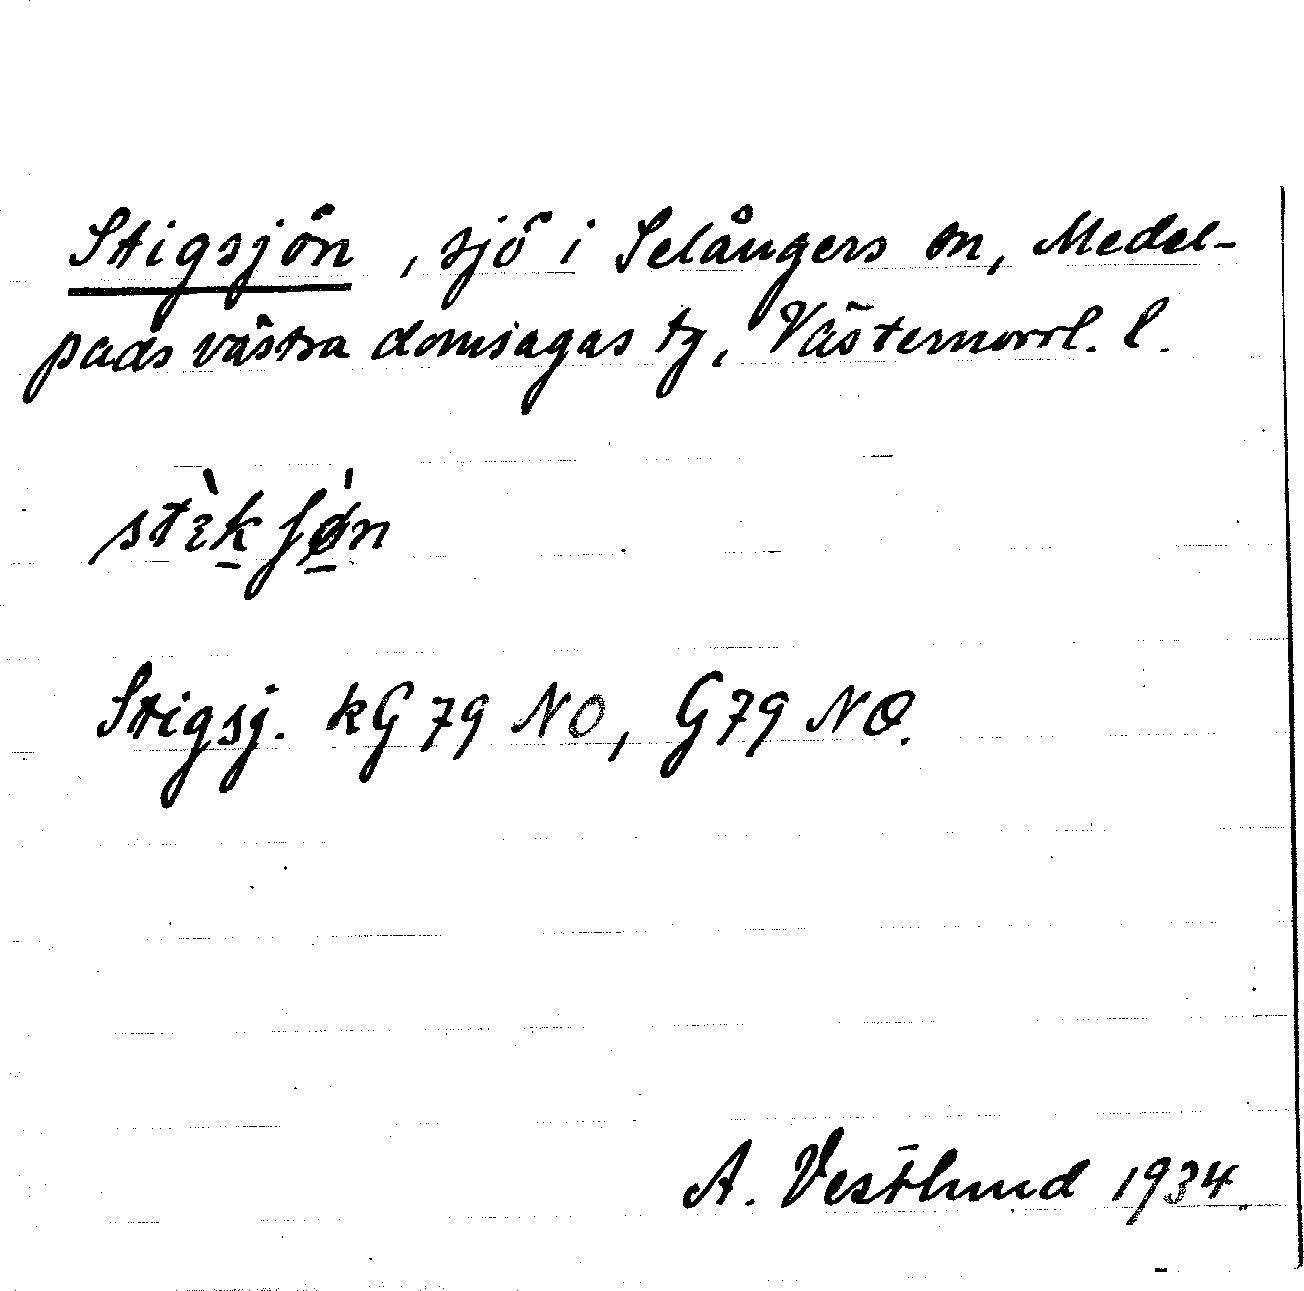 Stigsjön, sjö i Selångers sn, Medel-
pads västra domsagas tg, Västernorrl. l.
stὲk ʃø̱n
Stigsj. kG 79 NO, G 79 NO.
A. Vestlund 1934.